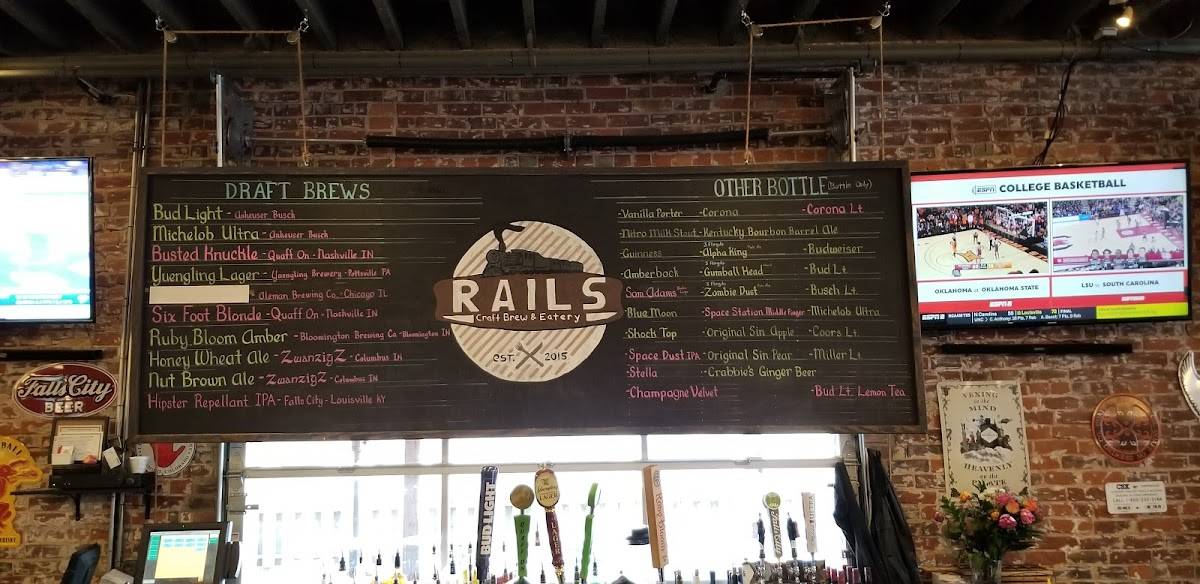 DRAFT BREWS
Bud Light - Anheuser Busch
Michelob Ultra - Anheuser Busch
Busted Knuckle - Quaff On - Nashville IN
Yuengling Lager - Yuengling Brewery - Pottsville PA
Aleman Brewing Co. - Chicago IL
Six Foot Blonde - Quaff On - Nashville IN
Ruby Bloom Amber - Bloomington Brewing Co - Bloomington IN
Honey Wheat Ale - ZwanzigZ - Columbus IN
Nut Brown Ale - ZwanzigZ - Columbus IN
Hipster Repellant IPA - Falls City - Louisville KY
RAILS
Craft Brew & Eatery
EST. 2015
OTHER BOTTLE (Bottle Only)
-Vanilla Porter -Corona -Corona Lt.
-Nitro Milk Stout -Kentucky Bourbon Barrel Ale
-Guinness 3 Floyds -Alpha King Pale Ale -Budweiser
-Amberbock 3 Floyds -Gumball Head -Bud Lt.
-Sam Adams 3 Floyds -Zombie Dust -Busch Lt.
-Blue Moon -Space Station Middle Finger -Michelob Ultra
-Shock Top -Original Sin Apple -Coors Lt.
-Space Dust IPA -Original Sin Pear -Miller Lt
-Stella -Crabbie's Ginger Beer
-Champagne Velvet -Bud Lt. Lemon Tea
ESPN COLLEGE BASKETBALL
OKLAHOMA at OKLAHOMA STATE
LSU vs SOUTH CAROLINA
ESPN2
Falls City
BEER
VEXING
to the
MIND
HEAVENLY
on the
PALATE
CSX
BUD LIGHT
LAGER
Falls City